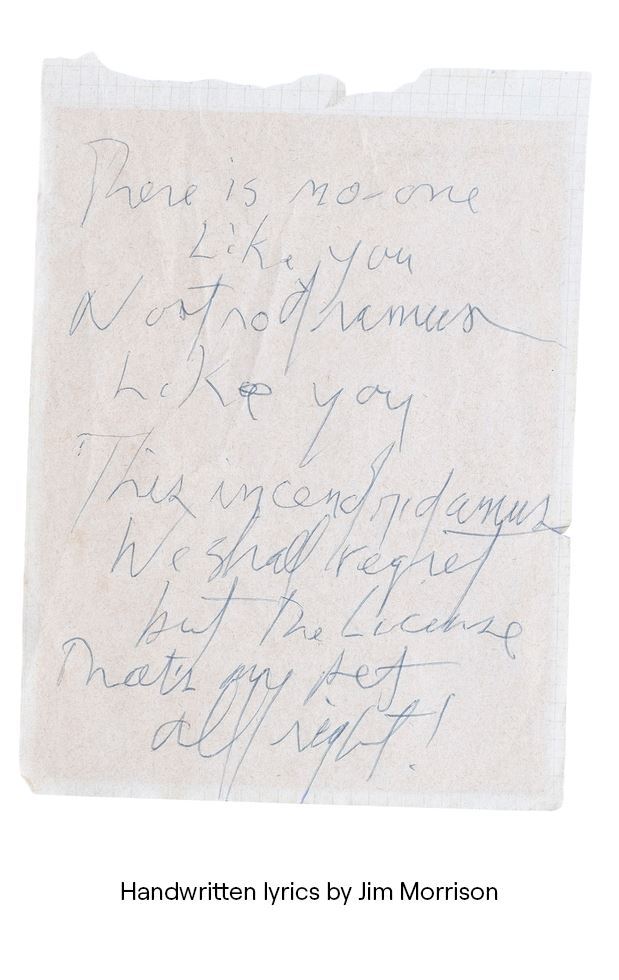 There is no-one
Like you
Nostrodramus
Like you
This incendridamus
We shall regret
but the License
That's my pet
all right!
Handwritten lyrics by Jim Morrison